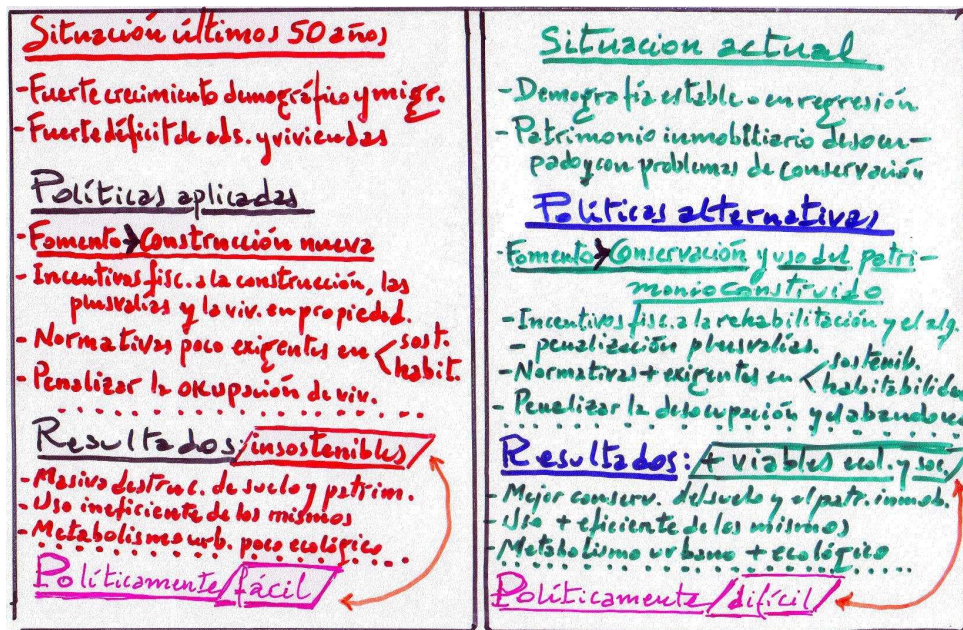 Situación últimos 50 años
- Fuerte crecimiento demográfico y migr.
- Fuerte déficit de eds. y viviendas
Políticas aplicadas
- Fomento → Construcción nueva
- Incentivas fisc. a la construcción, las
plusvalías y la viv. en propiedad.
- Normativas poco exigentes en < sost.
habit.
- Penalizar la okupación de viv.
Resultados: insostenibles
- Masiva destruc. de suelo y patrim.
- Uso ineficiente de los mismos
- Metabolismo urb. poco ecológico
Políticamente fácil
Situacion actual
- Demografía estable o en regresión
- Patrimonio inmobiliario desocu-
pado y con problemas de conservación
Políticas alternativas
- Fomento → Conservación y uso del patri-
monio construido
- Incentivos fisc. a la rehabilitación y el alq.
- penalización plusvalías.
- Normativas + exigentes en < sostenib.
habitabilidad
- Penalizar la desocupación y el abandono
Resultados: + viables ecol. y soc.
- Mejor conserv. del suelo y el patr. inmob.
- Uso + eficiente de los mismos
- Metabolismo urbano + ecológico
Políticamente difícil